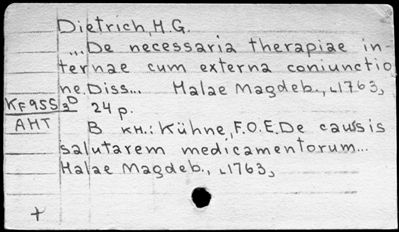 Dietrich, H.G.
...De necessaria therapiae in-
ternae cum externa coniunctio
ne. Diss... Halae Magdeb., ⌞1763⌟
KF955 24 p.
AHT В кн.: Kühne, F.O.E. De caussis
salutarem medicamentorum...
Halae Magdeb., ⌞1763⌟
+